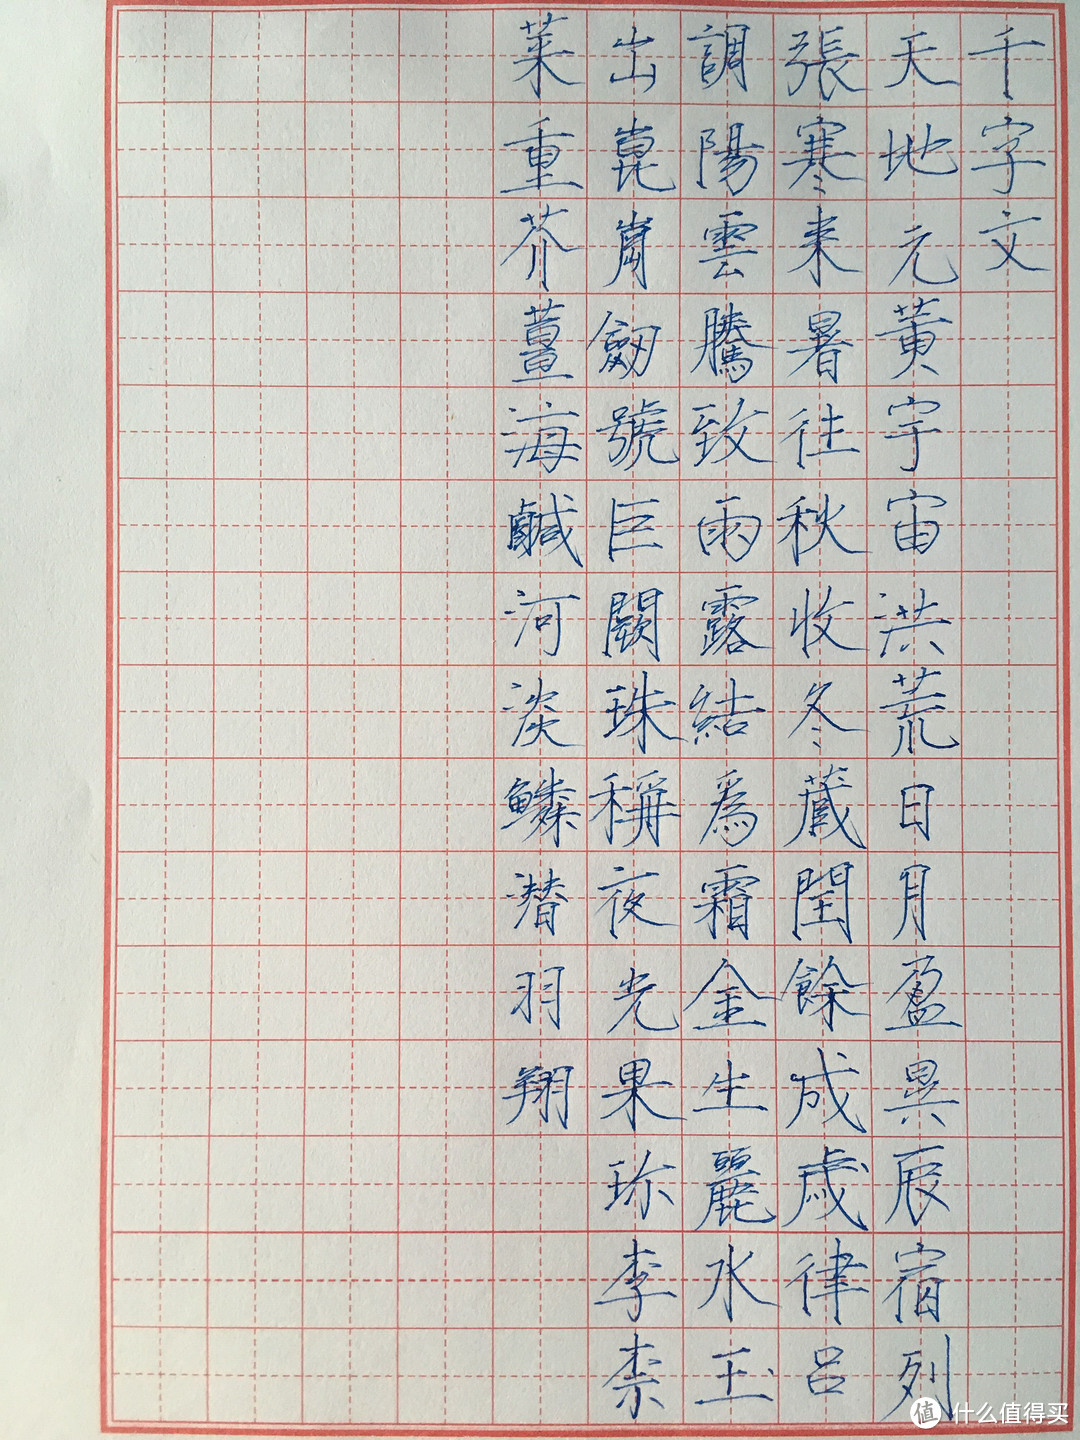 千字文
天地元黄宇宙洪荒日月盈異辰宿列
張寒来暑往秋收冬蔵閏餘成歳律呂
調陽雲騰致雨露結為霜金生麗水玉
出崑崗劒號巨闕珠稱夜光果珎李柰
菜重芥薑海鹹河淡鱗潜羽翔
值 什么值得买